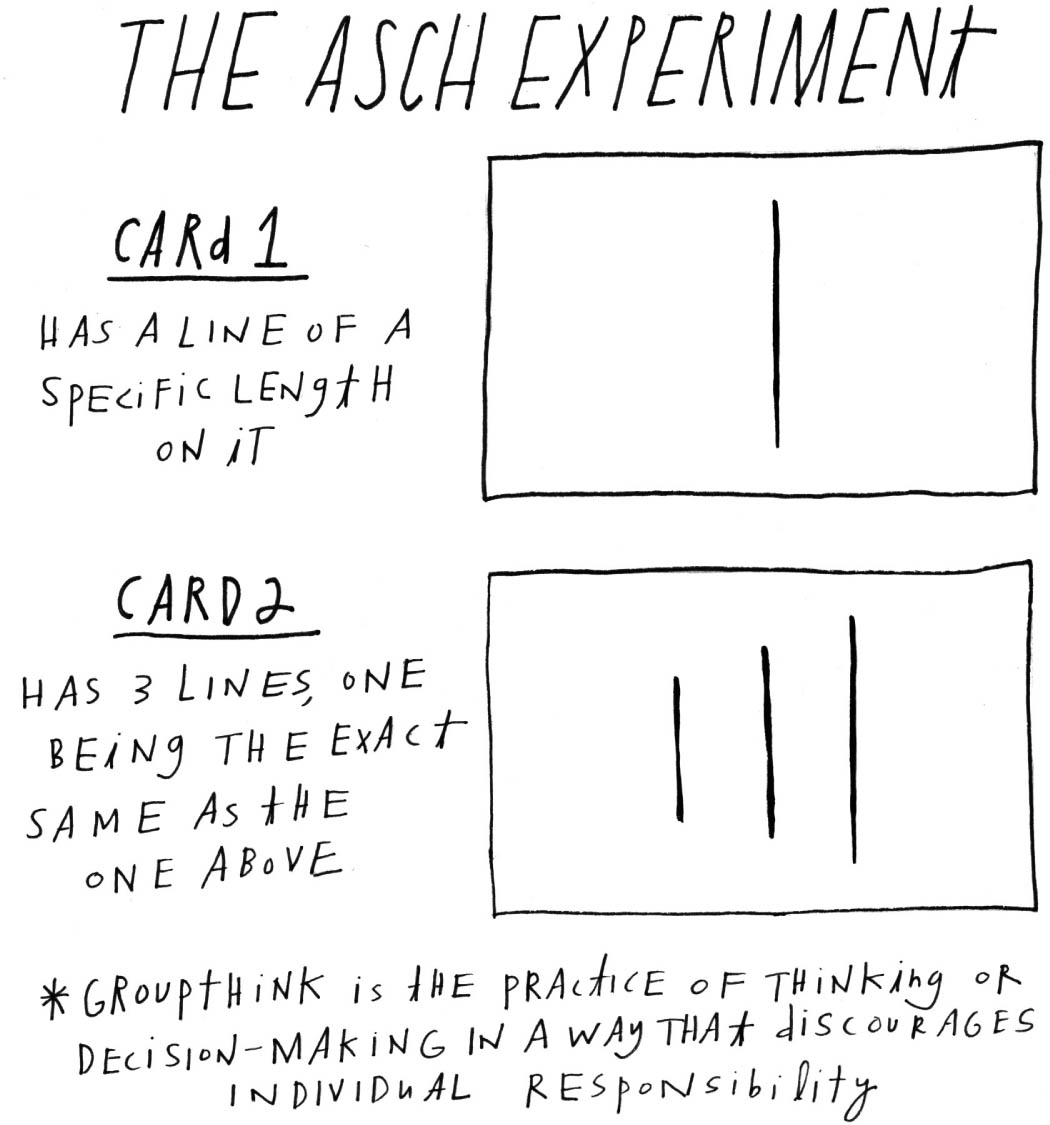 THE ASCH EXPERIMENt
CARd 1
HAS A LINE OF A
SPECiFiC LENgtH
ON iT
CARD 2
HAS 3 LINES, ONE
BEiNg THE EXACt
SAME AS tHE
ONE ABOVE
*GROUPtHiNK is tHE PRACtICE OF THiNKing OR
DECiSION-MAKiNG IN A WAy THAt diSCOURAGES
INDIVIDuAL RESpoNsibility